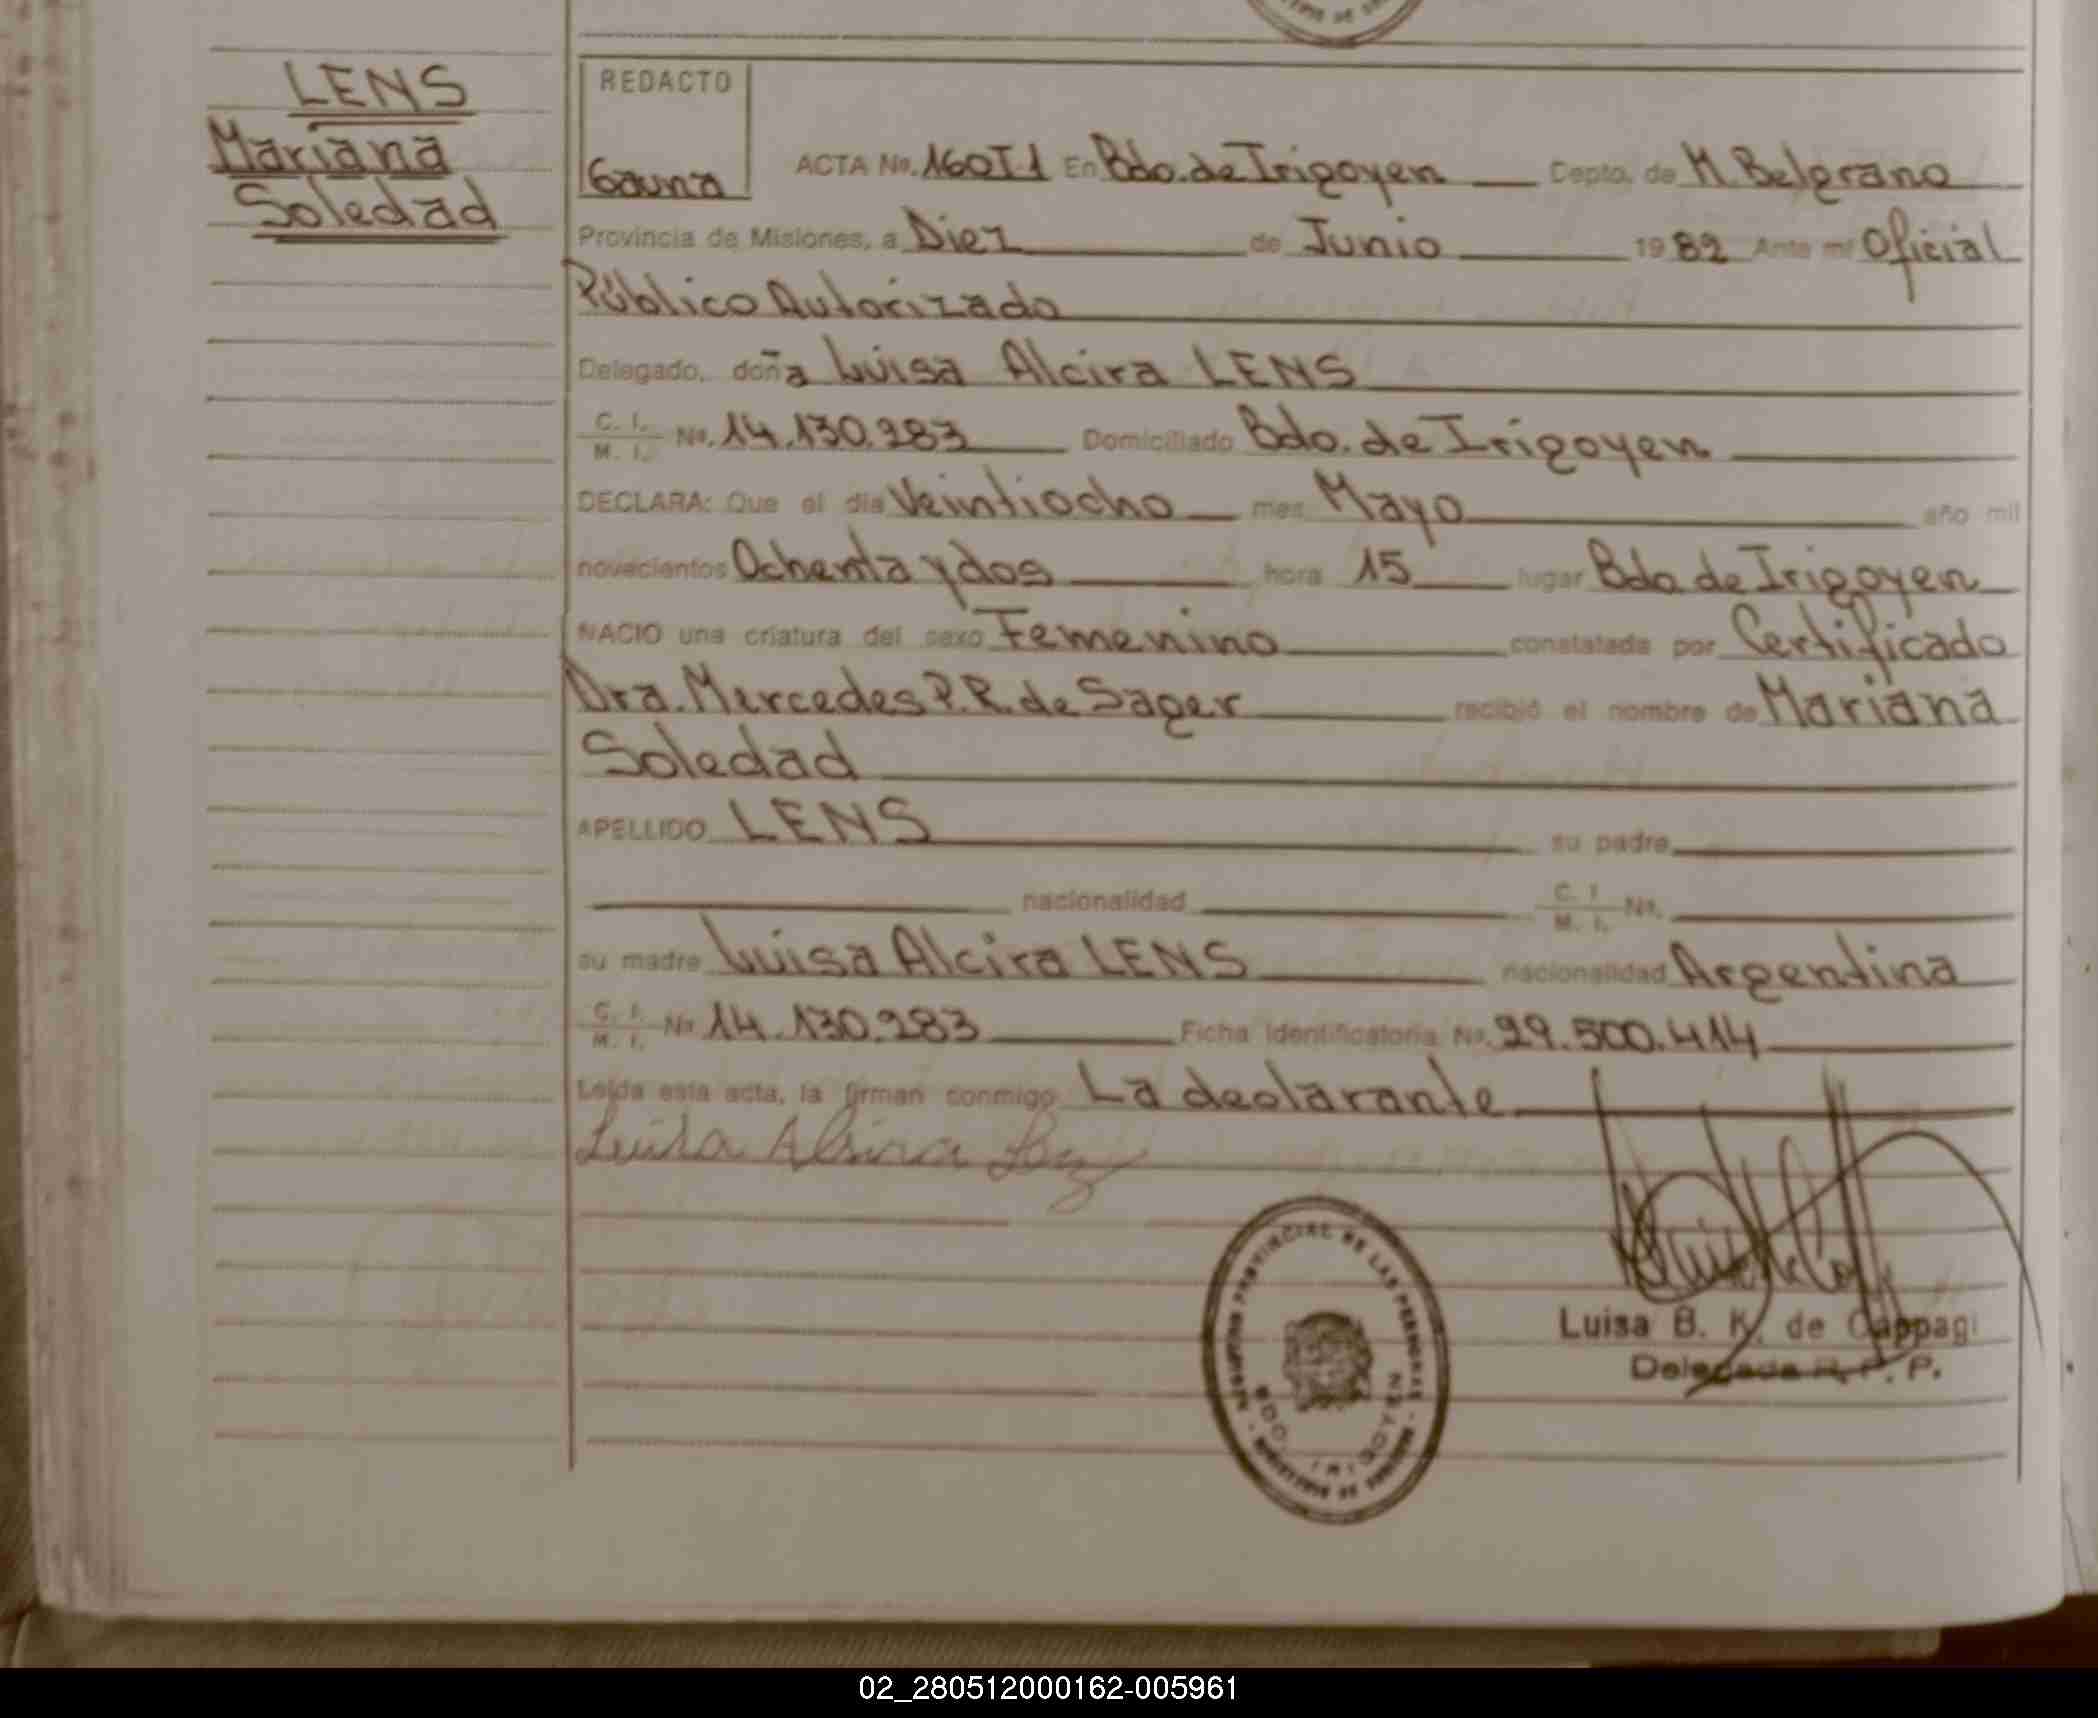 LENS
Mariana
Soledad
REDACTO
Gauna
ACTA No. 160T1 En Bdo. de Irigoyen Depto. de M. Belgrano
Provincia de Misiones, a Diez de Junio 1982 Ante mi Oficial
Público Autorizado
Delegado, doña Luisa Alcira LENS
C. I. M. I. No. 14.130.283 Domiciliado Bdo. de Irigoyen
DECLARA: Que el dia Veintiocho mes Mayo año mil
novecientos Ochenta y dos hora 15 lugar Bdo. de Irigoyen
NACIO una criatura del sexo Femenino constatada por Certificado
Dra. Mercedes P. R. de Sager recibió el nombre de Mariana
Soledad
APELLIDO LENS su padre
nacionalidad C. I. M. I. No.
su madre Luisa Alcira LENS nacionalidad Argentina
C. I. M. I. No 14.130.283 Ficha Identificatoria No. 29.500.414
Leída esta acta, la firman conmigo La declarante
Luisa Alcira
PROVINCIAL DE LAS PERSONAS
BDO. IRIGOYEN
Luisa B. K. de Cappagi
Delegada R. P. P.
02_280512000162-005961